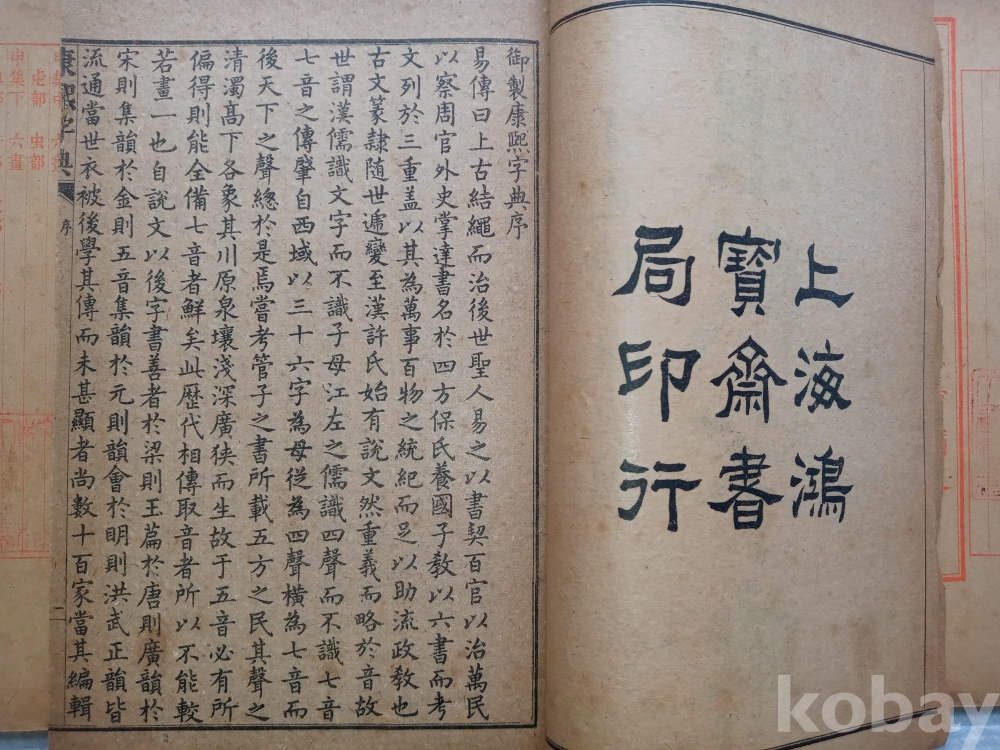 上海鴻
寶齋書
局印行
御製康熙字典序
易傳曰上古結繩而治後世聖人易之以書契百官以治萬民
以察周官外史掌達書名於四方保氏養國子教以六書而考
文列於三重盖以其為萬事百物之統紀而足以助流政教也
古文篆隷随世遞變至漢許氏始有說文然重義而略於音故
世謂漢儒識文字而不識子母江左之儒識四聲而不識七音
七音之傳肇自西域以三十六字為母從為四聲橫為七音而
後天下之聲總於是焉嘗考管子之書所載五方之民其聲之
清濁髙下各象其川原泉壤淺深廣狹而生故于五音必有所
偏得則能全備七音者鮮矣此歴代相傳取音者所以不能較
若畫一也自說文以後字書善者於梁則玉篇於唐則廣韻於
宋則集韻於金則五音集韻於元則韻會於明則洪武正韻皆
流通當世衣被後學其傳而未甚顯者尚數十百家當其編輯
康熙字典
序
一
虫部
申集下 六畫
kobay